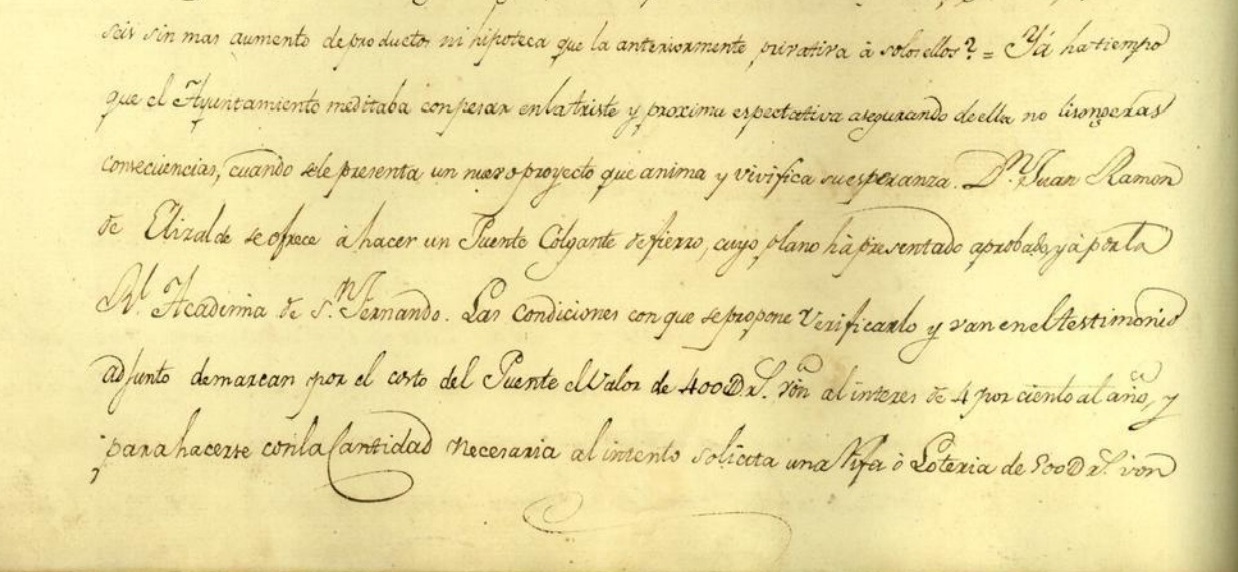 seis sin mas aumento de productos ni hipoteca que la anteriormente privativa à solos ellos? = Yá ha tiempo
que el Ayuntamiento meditaba con pesar en la triste y proxima espectativa asegurando de ella no lisongeras
consecuencias, cuando se le presenta un nuevo proyecto que anima y vivifica su esperanza. D.n Juan Ramon
de Elizalde se ofrece à hacer un Puente Colgante de fierro, cuyo plano hà presentado aprobado yà por la
Rl. Academia de S.n Fernando. Las condiciones con que se propone verificarlo y van en el testimonio
adjunto demarcan por el costo del Puente el valor de 400D rs. von al interes de 4 por ciento al año, y
para hacerse con la Cantidad necesaria al intento solicita una Rifa ò Loteria de 500D rs. von